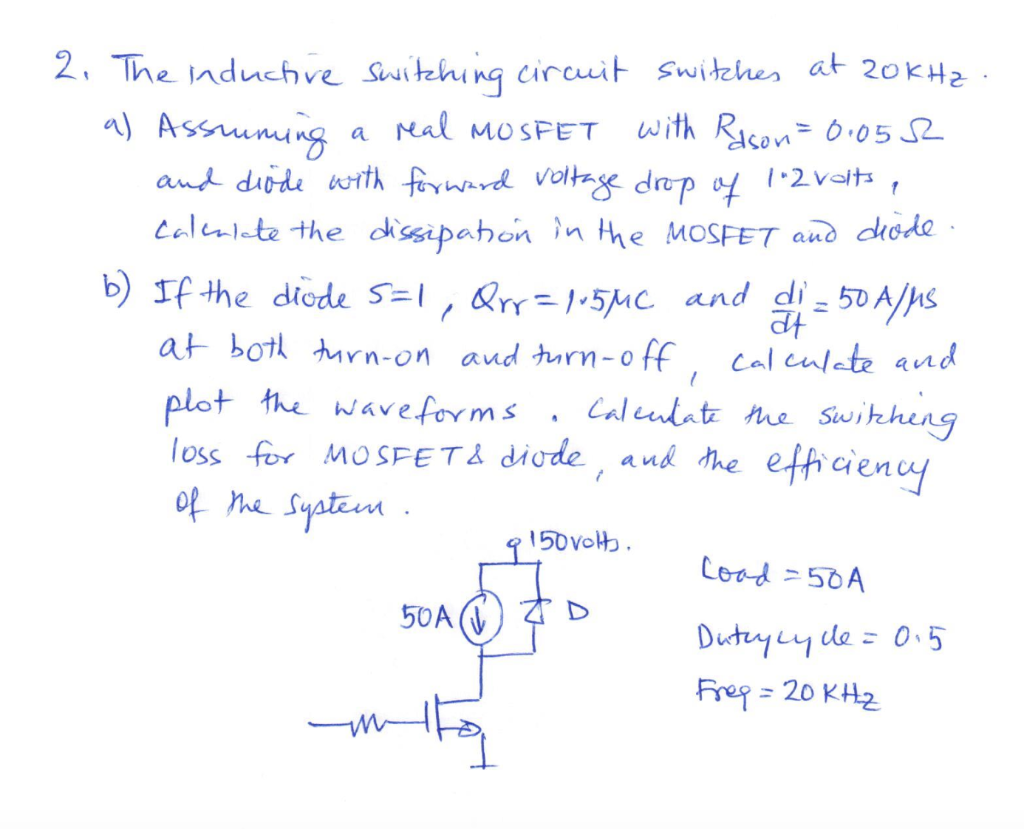 2. The inductive switching circuit switches at 20KHz.
a) Assuming a real MOSFET with Rdson = 0.05 Ω
and diode with forward voltage drop of 1.2 volts,
Calculate the dissipation in the MOSFET and diode.
b) If the diode S=1, Qrr = 1.5μC and di/dt = 50 A/μs
at both turn-on and turn-off, calculate and
plot the waveforms. Calculate the switching
loss for MOSFET & diode, and the efficiency
of the system.
150volts.
Load = 50A
50A
D
Dutycycle = 0.5
Freq = 20 KHz